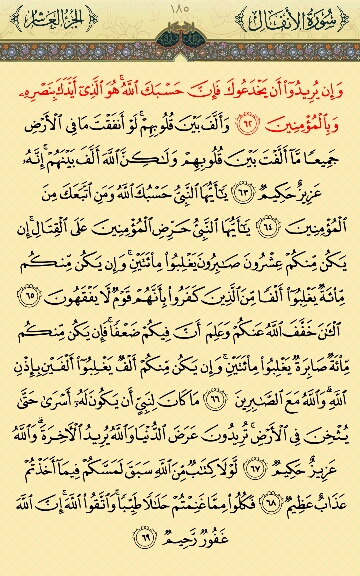 سُورَةُ الأَنفَالِ ١٨٥ الجُزءُ العَاشِرُ
وَإِن يُرِيدُوٓا۟ أَن يَخْدَعُوكَ فَإِنَّ حَسْبَكَ ٱللَّهُ ۚ هُوَ ٱلَّذِىٓ أَيَّدَكَ بِنَصْرِهِۦ
وَبِٱلْمُؤْمِنِينَ ﴿٦٢﴾ وَأَلَّفَ بَيْنَ قُلُوبِهِمْ ۚ لَوْ أَنفَقْتَ مَا فِى ٱلْأَرْضِ
جَمِيعًا مَّآ أَلَّفْتَ بَيْنَ قُلُوبِهِمْ وَلَـٰكِنَّ ٱللَّهَ أَلَّفَ بَيْنَهُمْ ۚ إِنَّهُۥ
عَزِيزٌ حَكِيمٌ ﴿٦٣﴾ يَـٰٓأَيُّهَا ٱلنَّبِىُّ حَسْبُكَ ٱللَّهُ وَمَنِ ٱتَّبَعَكَ مِنَ
ٱلْمُؤْمِنِينَ ﴿٦٤﴾ يَـٰٓأَيُّهَا ٱلنَّبِىُّ حَرِّضِ ٱلْمُؤْمِنِينَ عَلَى ٱلْقِتَالِ ۚ إِن
يَكُن مِّنكُمْ عِشْرُونَ صَـٰبِرُونَ يَغْلِبُوا۟ مِا۟ئَتَيْنِ ۚ وَإِن يَكُن مِّنكُم
مِّا۟ئَةٌ يَغْلِبُوٓا۟ أَلْفًا مِّنَ ٱلَّذِينَ كَفَرُوا۟ بِأَنَّهُمْ قَوْمٌ لَّا يَفْقَهُونَ ﴿٦٥﴾
ٱلْـَٔـٰنَ خَفَّفَ ٱللَّهُ عَنكُمْ وَعَلِمَ أَنَّ فِيكُمْ ضَعْفًا ۚ فَإِن يَكُن مِّنكُم
مِّا۟ئَةٌ صَابِرَةٌ يَغْلِبُوا۟ مِا۟ئَتَيْنِ ۚ وَإِن يَكُن مِّنكُمْ أَلْفٌ يَغْلِبُوٓا۟ أَلْفَيْنِ بِإِذْنِ
ٱللَّهِ ۗ وَٱللَّهُ مَعَ ٱلصَّـٰبِرِينَ ﴿٦٦﴾ مَا كَانَ لِنَبِىٍّ أَن يَكُونَ لَهُۥٓ أَسْرَىٰ حَتَّىٰ
يُثْخِنَ فِى ٱلْأَرْضِ ۚ تُرِيدُونَ عَرَضَ ٱلدُّنْيَا وَٱللَّهُ يُرِيدُ ٱلْـَٔاخِرَةَ ۗ وَٱللَّهُ
عَزِيزٌ حَكِيمٌ ﴿٦٧﴾ لَّوْلَا كِتَـٰبٌ مِّنَ ٱللَّهِ سَبَقَ لَمَسَّكُمْ فِيمَآ أَخَذْتُمْ
عَذَابٌ عَظِيمٌ ﴿٦٨﴾ فَكُلُوا۟ مِمَّا غَنِمْتُمْ حَلَـٰلًا طَيِّبًا ۚ وَٱتَّقُوا۟ ٱللَّهَ ۚ إِنَّ ٱللَّهَ
غَفُورٌ رَّحِيمٌ ﴿٦٩﴾